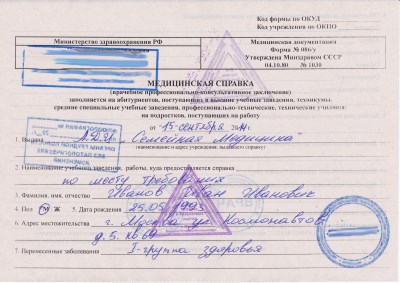 Код формы по ОКУД
Код учреждения по ОКПО
Министерство здравоохранения РФ
Медицинская документация
Форма № 086/у
Утверждена Минздравом СССР
04.10.80 № 1030
МЕДИЦИНСКАЯ СПРАВКА
(врачебное профессионально-консультативное заключение)
заполняется на абитуриентов, поступающих в высшие учебные заведения, техникумы,
средние специальные учебные заведения, профессионально-технические, технические училища
на подростков, поступающих на работу
от 15 сентября
1. Выдана "Семейная Медицина"
(наименование и адрес учреждения, выдавшего справку)
2. Наименование учебного заведения, работы, куда предоставляется справка
по месту требования
3. Фамилия, имя, отчество Иванов Иван Иванович
4. Пол М Ж 5. Дата рождения 25.05.1993
6. Адрес местожительства г. Москва ул. Космонавтов
д. 5. кв. 69
7. Перенесенные заболевания I-группа здоровья